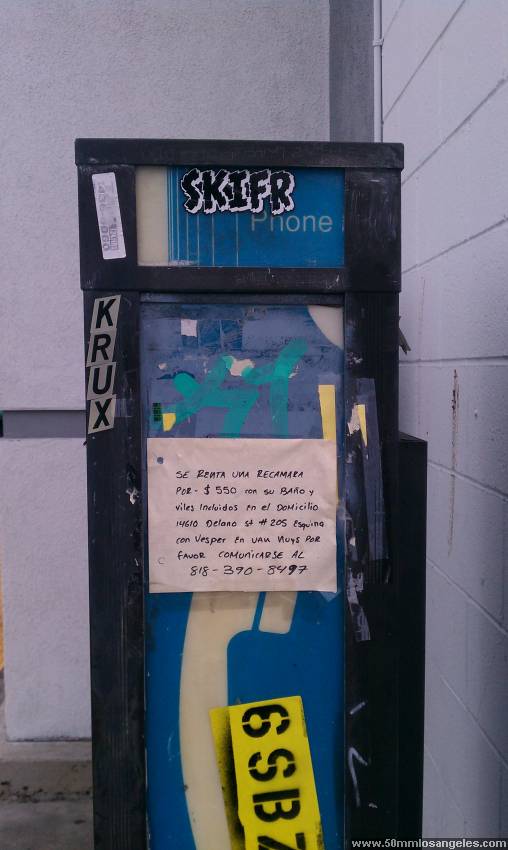 SKIFR
Phone
KRUX
SE RENTA UNA RECAMARA
POR- $550 con su BAÑO y
viles Incluidos En el DOMICILIO
14610 Delano st #205 Esquina
con Vesper En VAN NUYS POR
FAVOR COMUNICARSE AL
818-390-8497
6SBZ
www.50mmlosangeles.com